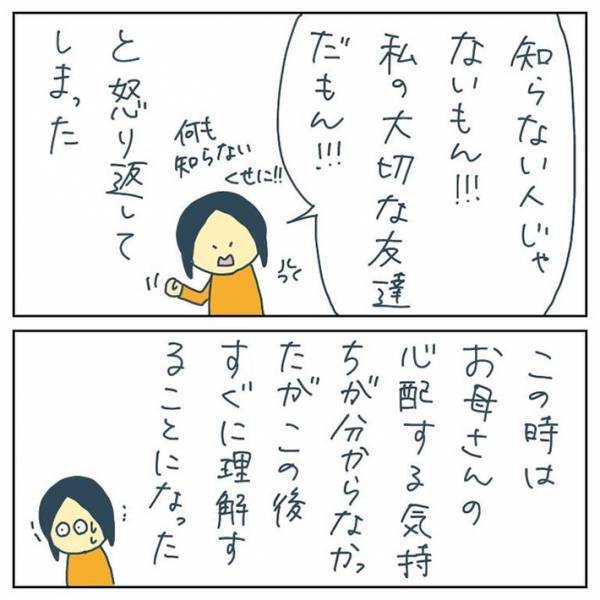 知らない人じゃ
ないもん!!!
私の大切な友達
だもん!!!
何も
知らない
くせに!!
カッて
と怒り返して
しまった
この時は
お母さんの
心配する気持
ちが分からなかっ
たがこの後
すぐに理解す
ることになった